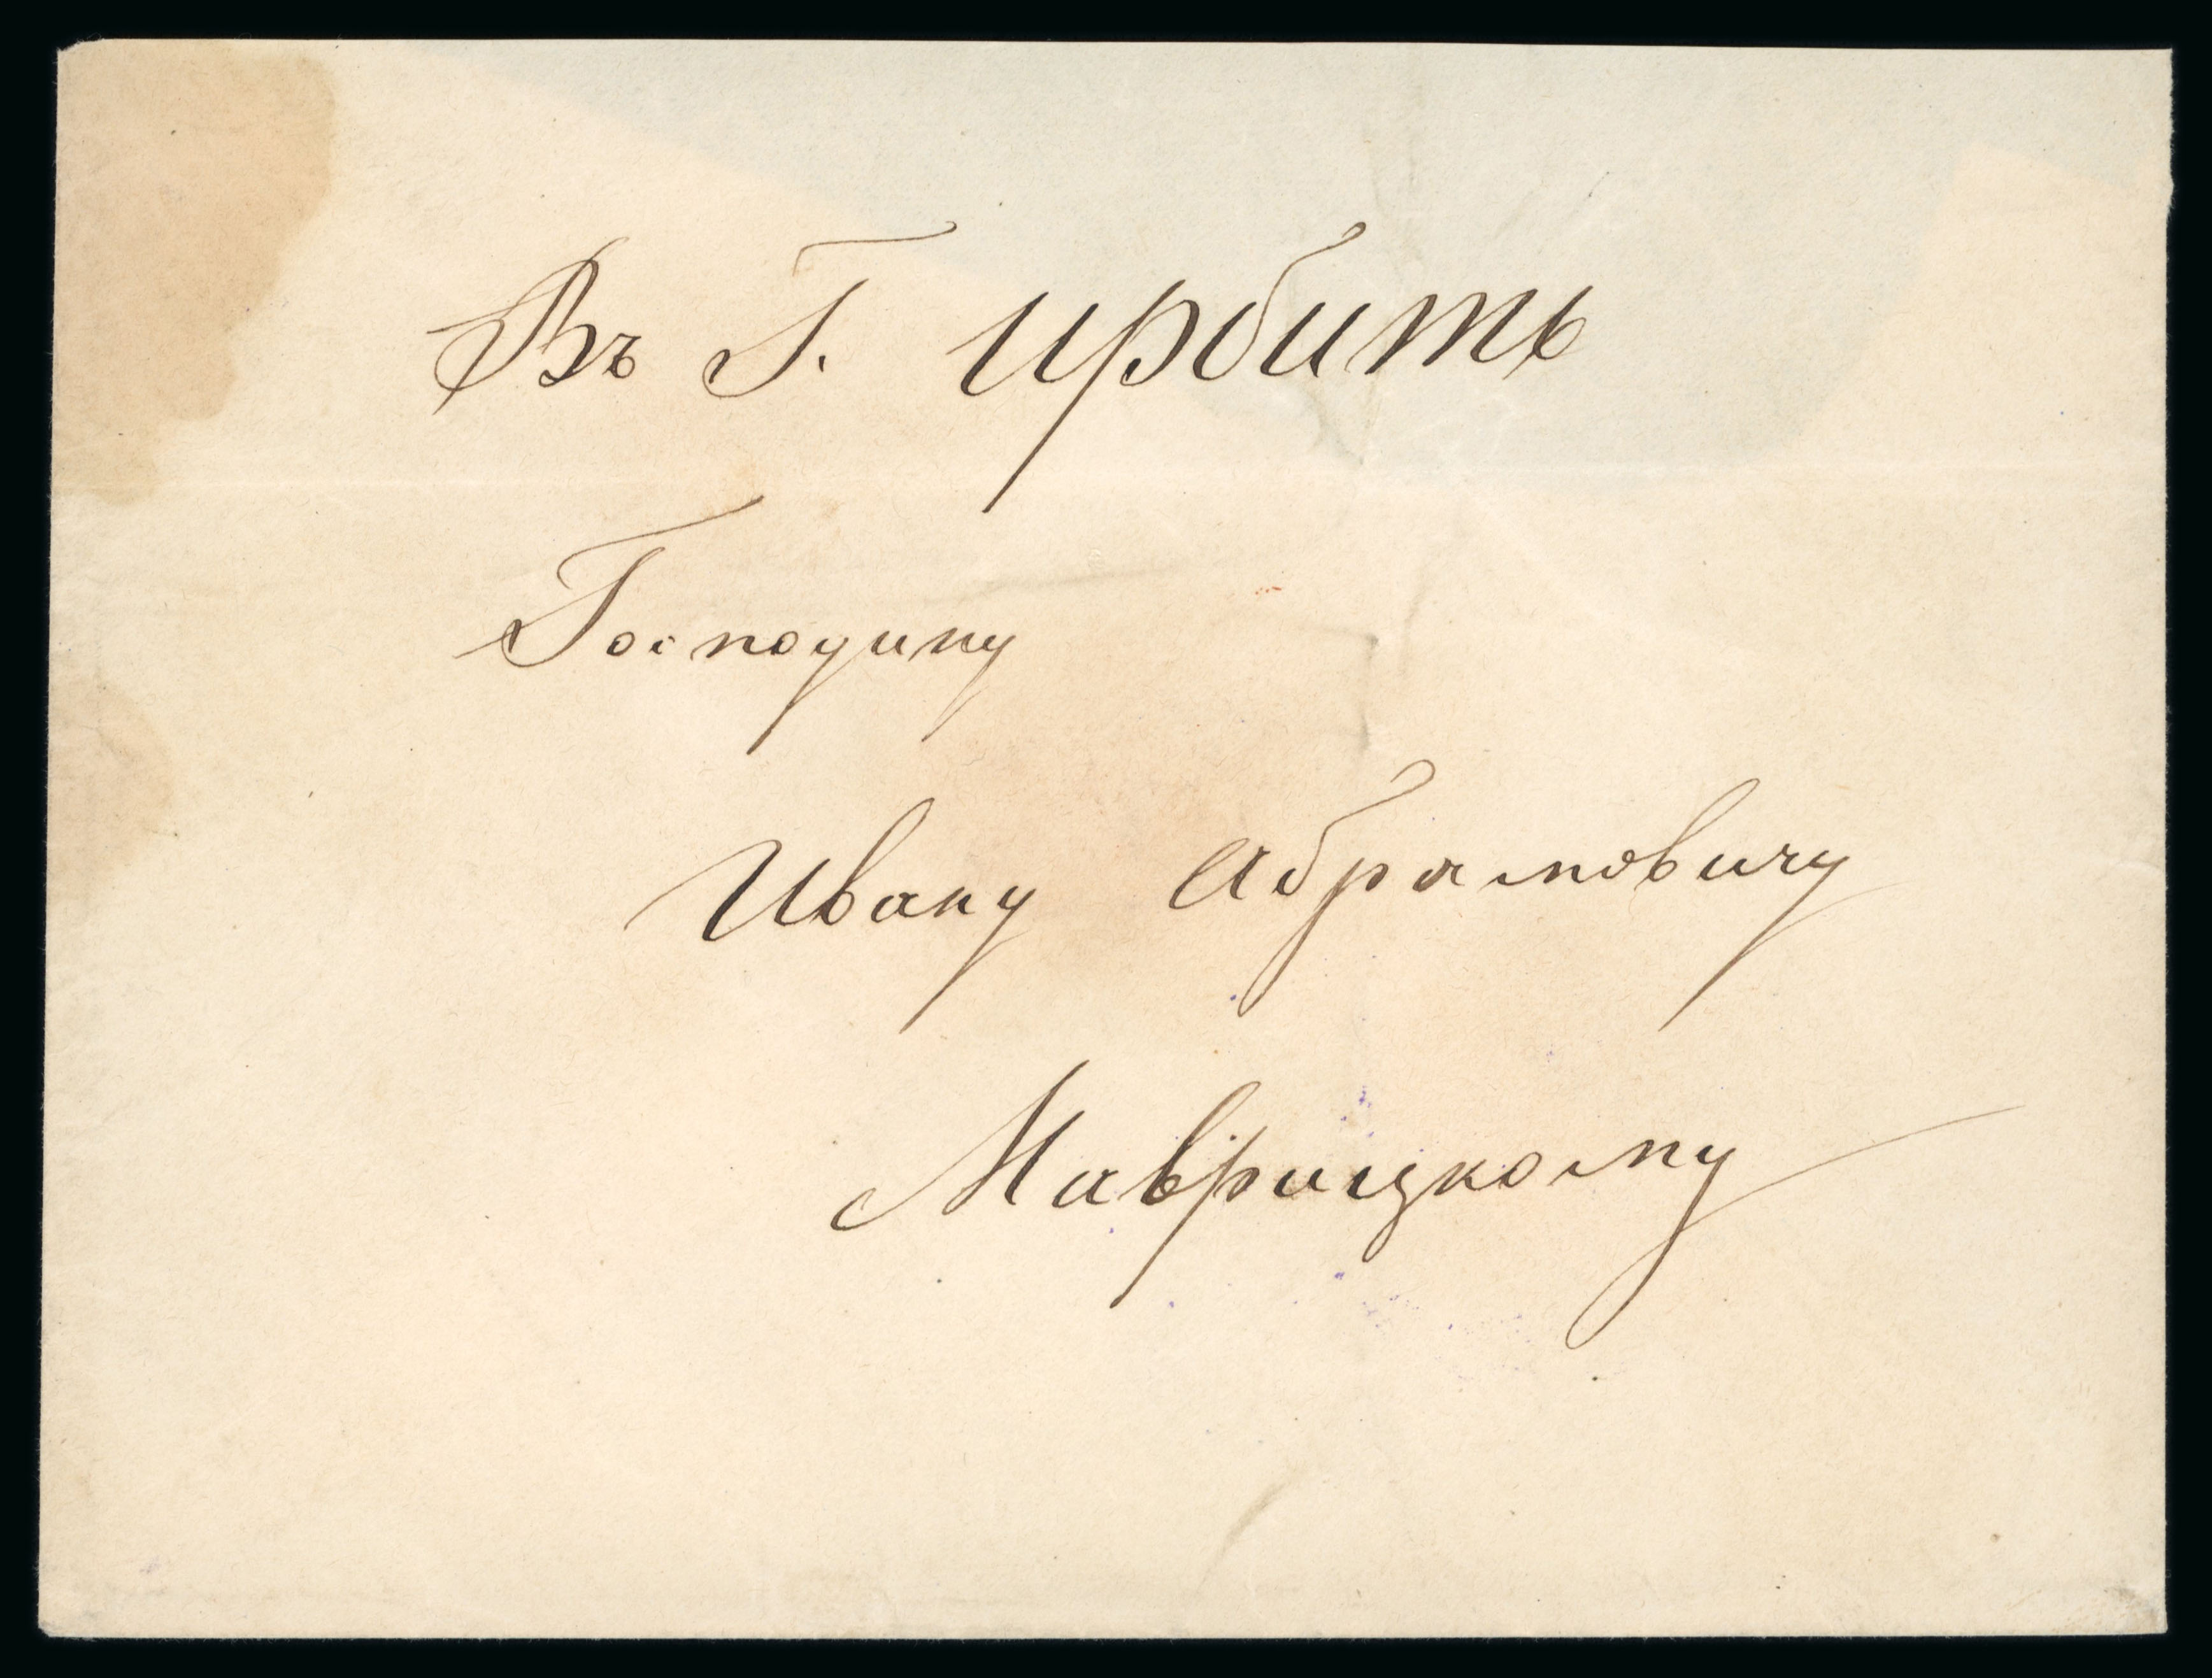 Въ Г. Ирбить
Господину
Ивану Абрамовичу
Мавріцкому